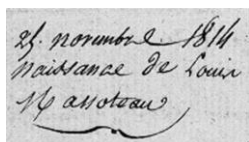 25 novembre 1814
naissance de Louis
Massoteau